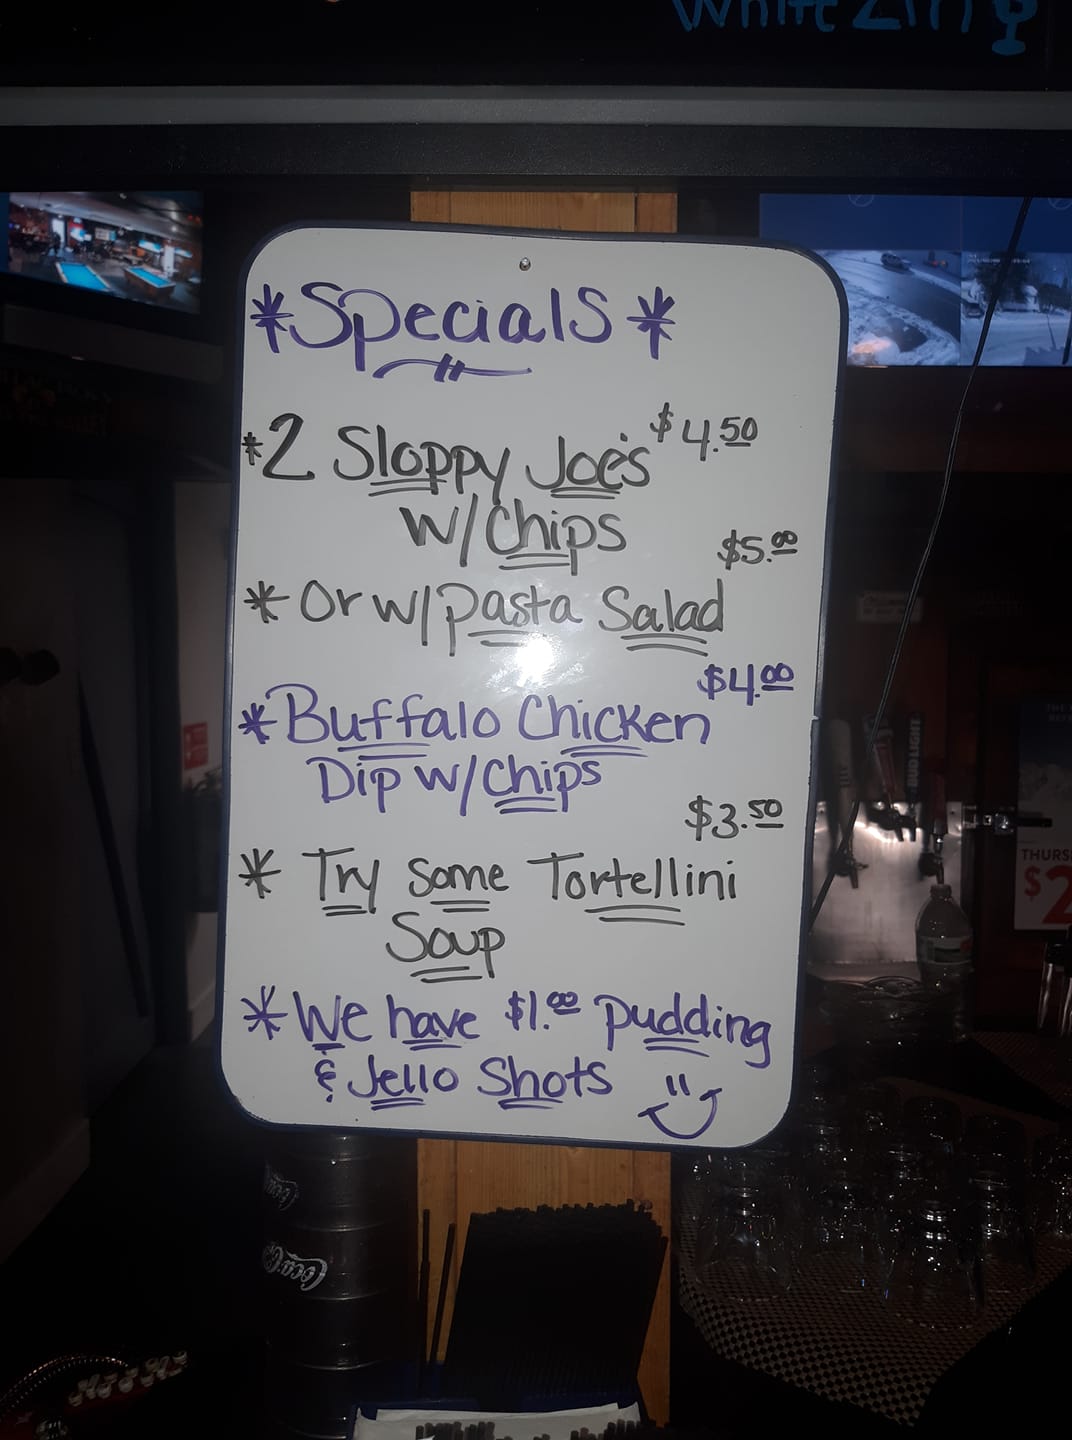 White Zin
*Specials*
*2 Sloppy Joe's $4.50
w/Chips
$5.00
* Or w/Pasta Salad
$4.00
*Buffalo Chicken
Dip w/Chips
$3.50
* Try Some Tortellini
Soup
*We have $1.00 pudding
& Jello Shots
BUD LIGHT
THURS
$2
Coca-Co